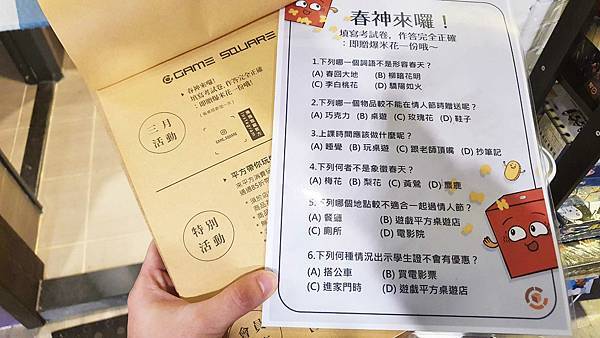 GAME SQUARE
春神來囉!
填寫考試卷,作答完全正確
:即贈爆米花一份哦~
三月
活動
平方帶你玩
來平方消費
特別
活動
會員
春神來囉!
填寫考試卷,作答完全正確
:即贈爆米花一份哦~
1.下列哪一個詞語不是形容春天?
(A) 春回大地 (B) 柳暗花明
(C) 李白桃花 (D) 驕陽如火
2.下列哪一個物品較不能在情人節時贈送呢?
(A) 巧克力 (B) 桌遊 (C) 玫瑰花 (D) 鞋子
3.上課時間應該做什麼呢?
(A) 睡覺 (B) 玩桌遊 (C) 跟老師頂嘴 (D) 抄筆記
4.下列何者不是象徵春天?
(A) 梅花 (B) 梨花 (C) 黃鶯 (D) 麋鹿
5.下列哪個地點較不適合一起過情人節?
(A) 餐廳 (B) 遊戲平方桌遊店
(C) 廁所 (D) 電影院
6.下列何種情況出示學生證不會有優惠?
(A) 搭公車 (B) 買電影票
(C) 進家門時 (D) 遊戲平方桌遊店